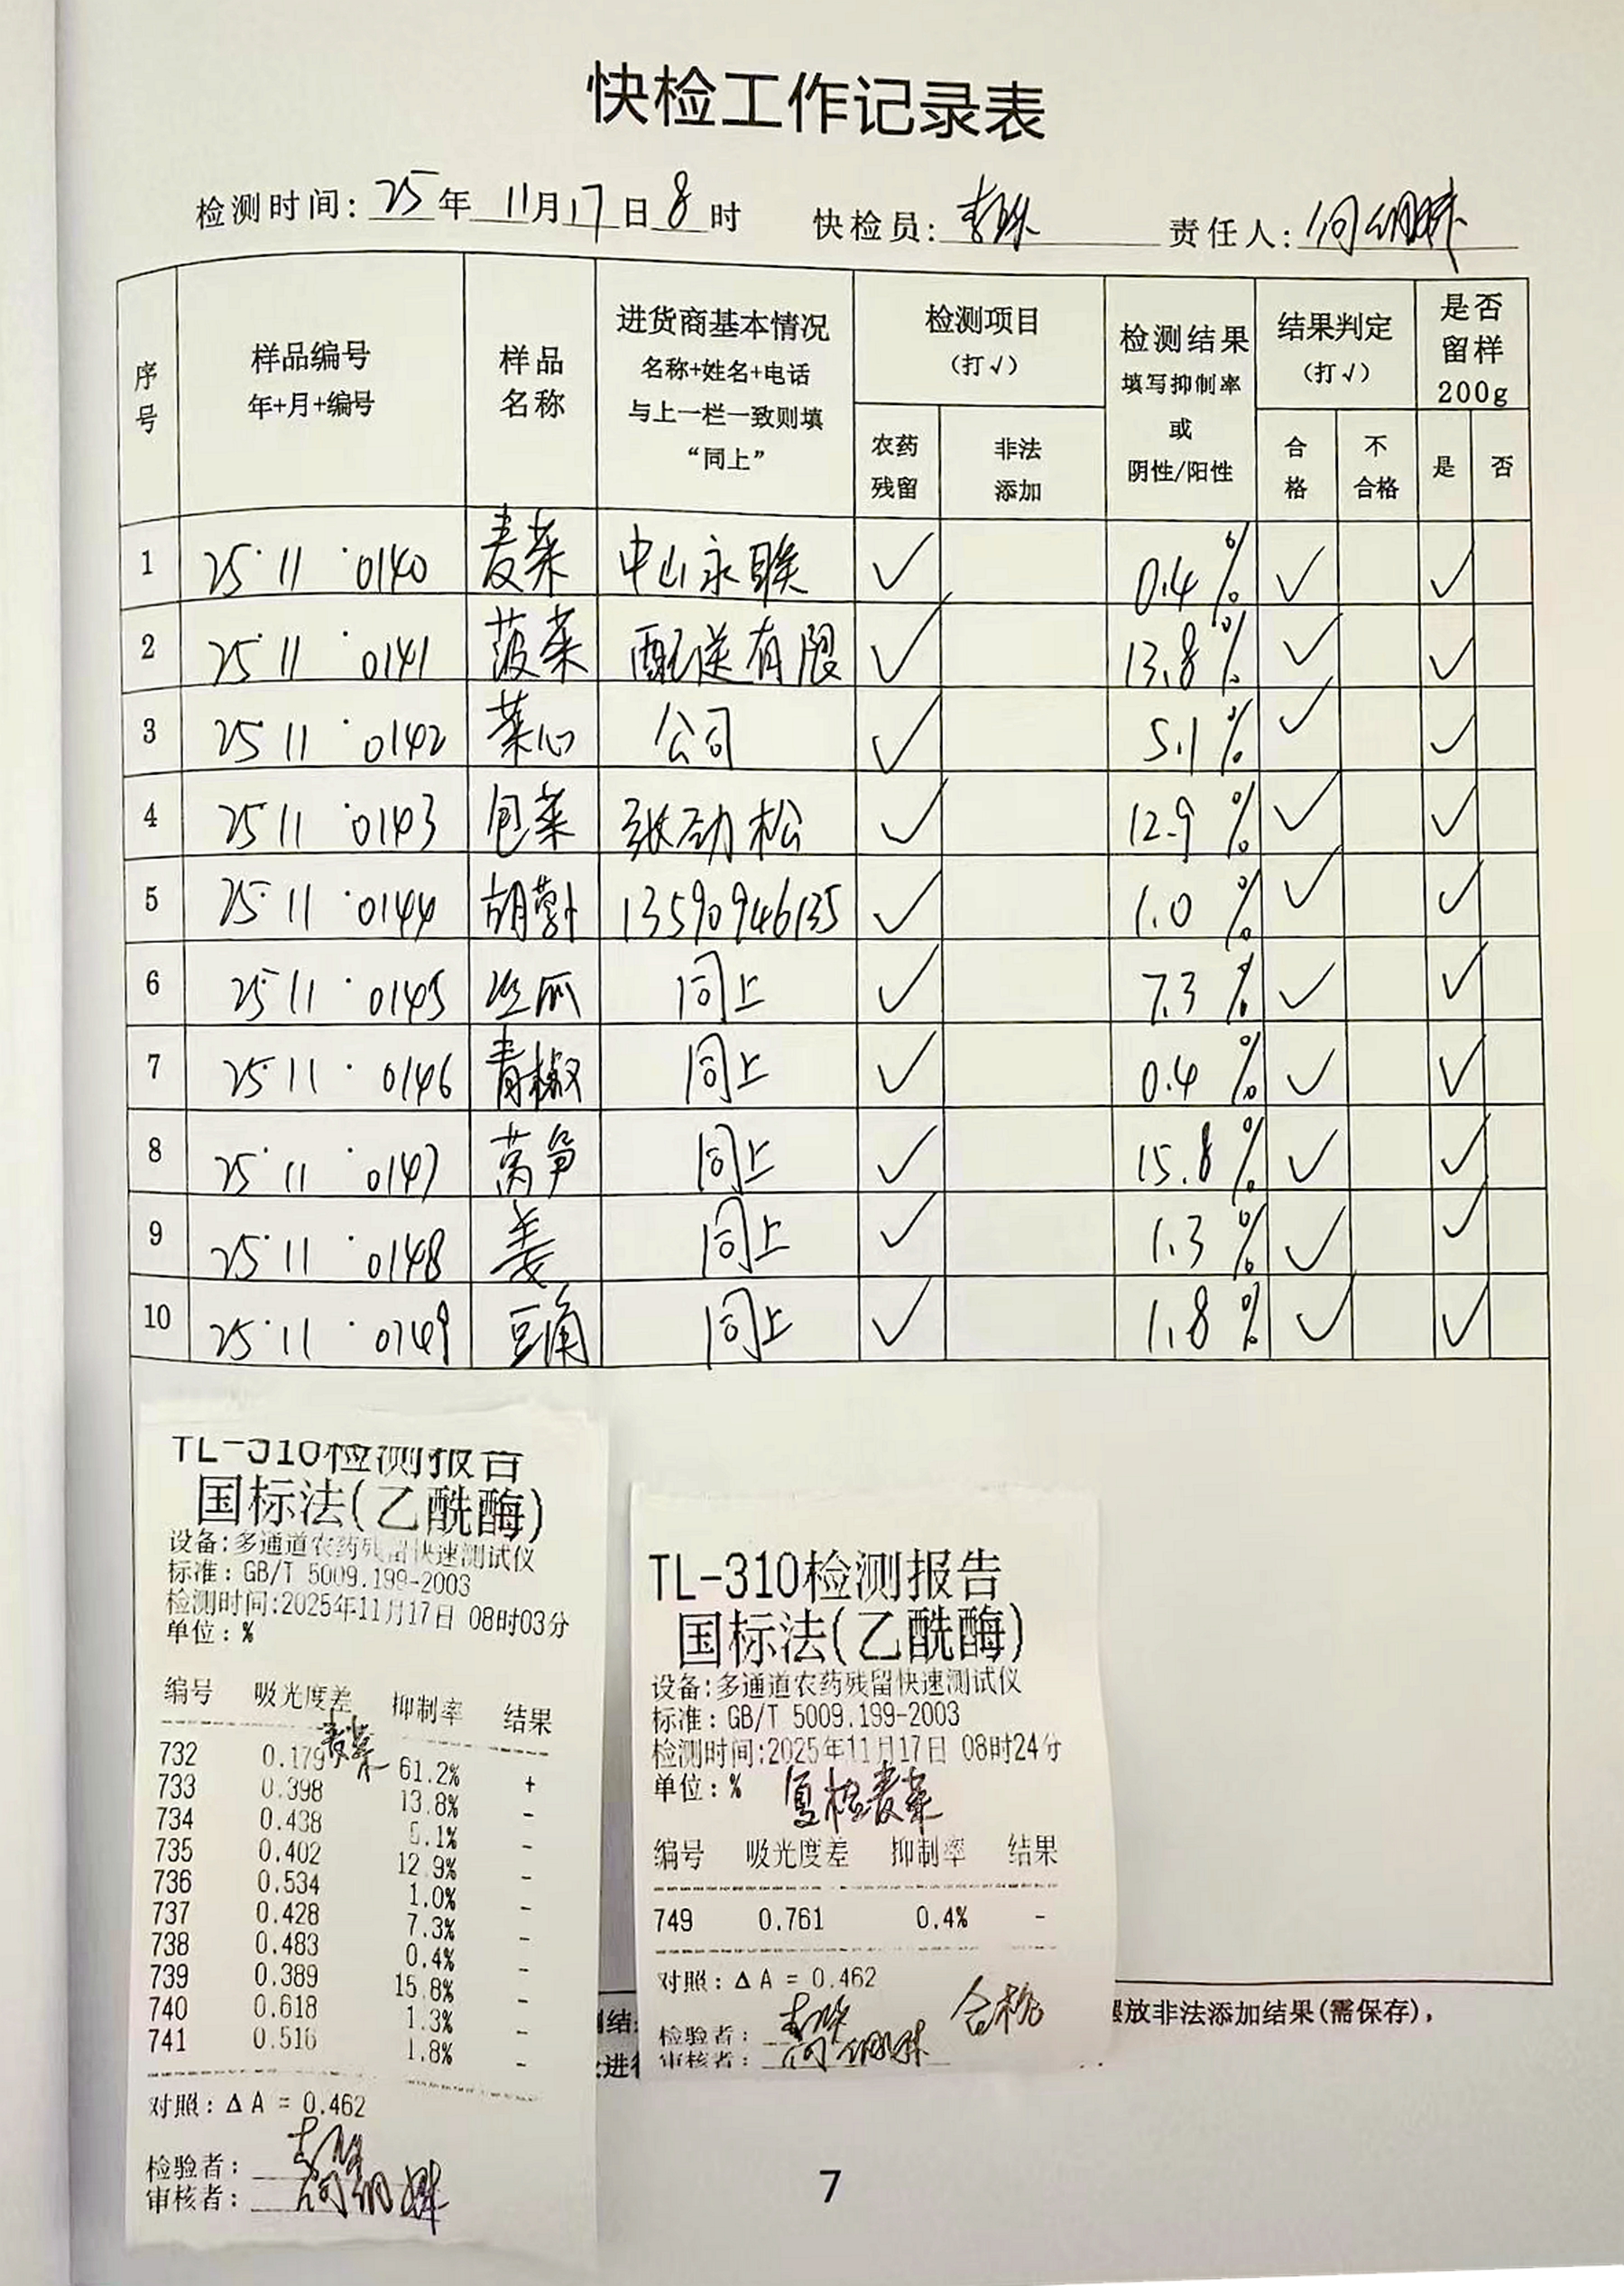 快检工作记录表
检测时间：25年11月17日8时 快检员： 责任人：
序号 样品编号 年+月+编号 样品名称 进货商基本情况 名称+姓名+电话 与上一栏一致则填“同上” 检测项目（打√） 农药残留 非法添加 检测结果 填写抑制率 或 阴性/阳性 结果判定（打√） 合格 不合格 是否留样200g 是 否
1 25·11·0140 麦菜 中山永联 √ 0.4% √ √
2 25·11·0141 菠菜 配送有限 √ 13.8% √ √
3 25 11·0142 菜心 公司 √ 5.1% √ √
4 25 11·0143 包菜 张劲松 √ 12.9% √ √
5 25·11·0144 胡萝卜 13590946135 √ 1.0% √ √
6 25·11·0145 丝瓜 同上 √ 7.3% √ √
7 25·11·0146 青椒 同上 √ 0.4% √ √
8 25·11·0147 莴笋 同上 √ 15.8% √ √
9 25·11·0148 姜 同上 √ 1.3% √ √
10 25·11·0149 豆角 同上 √ 1.8% √ √
TL-310检测报告
国标法(乙酰酶)
设备:多通道农药残留快速测试仪
标准：GB/T 5009.199-2003
检测时间:2025年11月17日 08时03分
单位：%
编号 吸光度差 抑制率 结果
麦菜
732 0.179 61.2% +
733 0.398 13.8% -
734 0.438 5.1% -
735 0.402 12.9% -
736 0.534 1.0% -
737 0.428 7.3% -
738 0.483 0.4% -
739 0.389 15.8% -
740 0.618 1.3% -
741 0.516 1.8% -
对照：ΔA = 0.462
检验者：
审核者：
TL-310检测报告
国标法(乙酰酶)
设备:多通道农药残留快速测试仪
标准：GB/T 5009.199-2003
检测时间:2025年11月17日 08时24分
单位：%
复检麦菜
编号 吸光度差 抑制率 结果
749 0.761 0.4% -
对照：ΔA = 0.462
合格
检验者：
审核者：
放非法添加结果(需保存)，
7